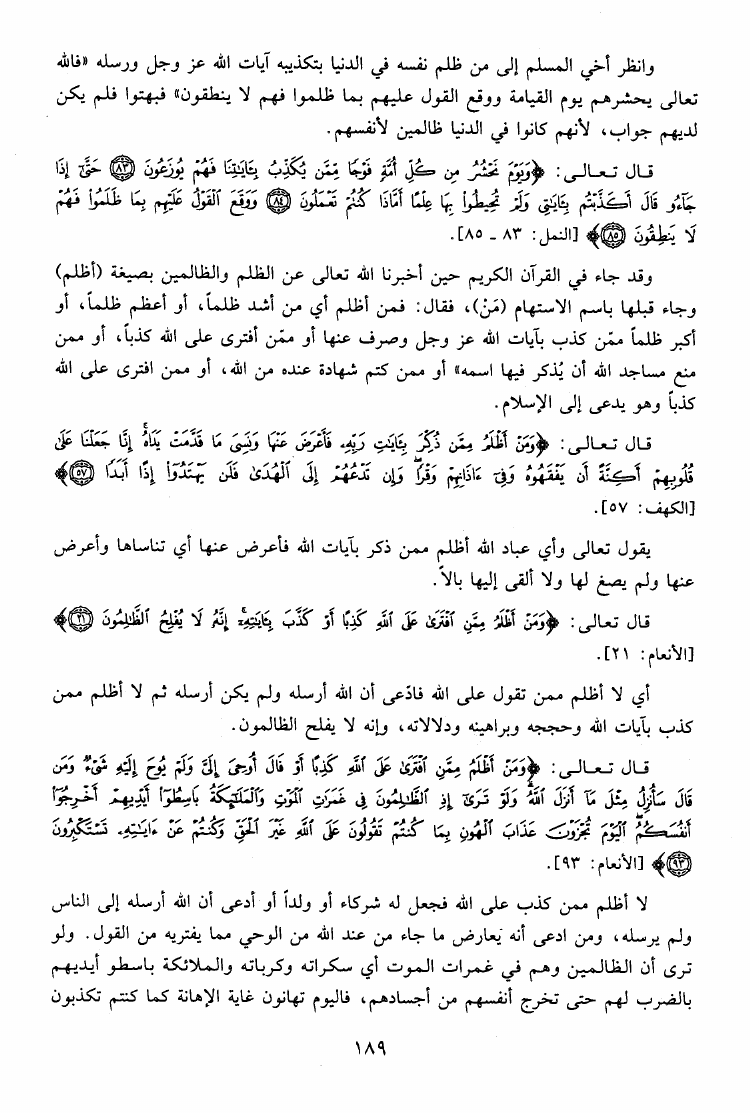 وانظر أخي المسلم إلى من ظلم نفسه في الدنيا بتكذيبه آيات الله عز وجل ورسله «فالله
تعالى يحشرهم يوم القيامة ووقع القول عليهم بما ظلموا فهم لا ينطقون» فبهتوا فلم يكن
لديهم جواب، لأنهم كانوا في الدنيا ظالمين لأنفسهم.
قال تعالى: ﴿وَيَوْمَ نَحْشُرُ مِن كُلِّ أُمَّةٍ فَوْجًا مِّمَّن يُكَذِّبُ بِـَٔايَـٰتِنَا فَهُمْ يُوزَعُونَ ﴿٨٣﴾ حَتَّىٰٓ إِذَا
جَآءُو قَالَ أَكَذَّبْتُم بِـَٔايَـٰتِى وَلَمْ تُحِيطُوا۟ بِهَا عِلْمًا أَمَّاذَا كُنتُمْ تَعْمَلُونَ ﴿٨٤﴾ وَوَقَعَ ٱلْقَوْلُ عَلَيْهِم بِمَا ظَلَمُوا۟ فَهُمْ
لَا يَنطِقُونَ ﴿٨٥﴾﴾ [النمل: ٨٣ ـ ٨٥].
وقد جاء في القرآن الكريم حين أخبرنا الله تعالى عن الظلم والظالمين بصيغة (أظلم)
وجاء قبلها باسم الاستهام (مَنْ)، فقال: فمن أظلم أي من أشد ظلماً، أو أعظم ظلماً، أو
أكبر ظلماً ممّن كذب بآيات الله عز وجل وصرف عنها أو ممّن أفترى على الله كذباً، أو ممن
منع مساجد الله أن يُذكر فيها اسمه» أو ممن كتم شهادة عنده من الله، أو ممن افترى على الله
كذباً وهو يدعى إلى الإسلام.
قال تعالى: ﴿وَمَنْ أَظْلَمُ مِمَّن ذُكِّرَ بِـَٔايَـٰتِ رَبِّهِۦ فَأَعْرَضَ عَنْهَا وَنَسِىَ مَا قَدَّمَتْ يَدَاهُ ۚ إِنَّا جَعَلْنَا عَلَىٰ
قُلُوبِهِمْ أَكِنَّةً أَن يَفْقَهُوهُ وَفِىٓ ءَاذَانِهِمْ وَقْرًا ۖ وَإِن تَدْعُهُمْ إِلَى ٱلْهُدَىٰ فَلَن يَهْتَدُوٓا۟ إِذًا أَبَدًا ﴿٥٧﴾﴾
[الكهف: ٥٧].
يقول تعالى وأي عباد الله أظلم ممن ذكر بآيات الله فأعرض عنها أي تناساها وأعرض
عنها ولم يصغ لها ولا ألقى إليها بالاً.
قال تعالى: ﴿وَمَنْ أَظْلَمُ مِمَّنِ ٱفْتَرَىٰ عَلَى ٱللَّهِ كَذِبًا أَوْ كَذَّبَ بِـَٔايَـٰتِهِۦٓ ۗ إِنَّهُۥ لَا يُفْلِحُ ٱلظَّـٰلِمُونَ ﴿٢١﴾﴾
[الأنعام: ٢١].
أي لا أظلم ممن تقول على الله فادّعى أن الله أرسله ولم يكن أرسله ثم لا أظلم ممن
كذب بآيات الله وحججه وبراهينه ودلالاته، وإنه لا يفلح الظالمون.
قال تعالى: ﴿وَمَنْ أَظْلَمُ مِمَّنِ ٱفْتَرَىٰ عَلَى ٱللَّهِ كَذِبًا أَوْ قَالَ أُوحِىَ إِلَىَّ وَلَمْ يُوحَ إِلَيْهِ شَىْءٌ وَمَن
قَالَ سَأُنزِلُ مِثْلَ مَآ أَنزَلَ ٱللَّهُ ۗ وَلَوْ تَرَىٰٓ إِذِ ٱلظَّـٰلِمُونَ فِى غَمَرَٰتِ ٱلْمَوْتِ وَٱلْمَلَـٰٓئِكَةُ بَاسِطُوٓا۟ أَيْدِيهِمْ أَخْرِجُوٓا۟
أَنفُسَكُمُ ۖ ٱلْيَوْمَ تُجْزَوْنَ عَذَابَ ٱلْهُونِ بِمَا كُنتُمْ تَقُولُونَ عَلَى ٱللَّهِ غَيْرَ ٱلْحَقِّ وَكُنتُمْ عَنْ ءَايَـٰتِهِۦ تَسْتَكْبِرُونَ
﴿٩٣﴾﴾ [الأنعام: ٩٣].
لا أظلم ممن كذب على الله فجعل له شركاء أو ولداً أو أدعى أن الله أرسله إلى الناس
ولم يرسله، ومن ادعى أنه يَعارض ما جاء من عند الله من الوحي مما يفتريه من القول. ولو
ترى أن الظالمين وهم في غمرات الموت أي سكراته وكرباته والملائكة باسطو أيديهم
بالضرب لهم حتى تخرج أنفسهم من أجسادهم، فاليوم تهانون غاية الإهانة كما كنتم تكذبون
١٨٩